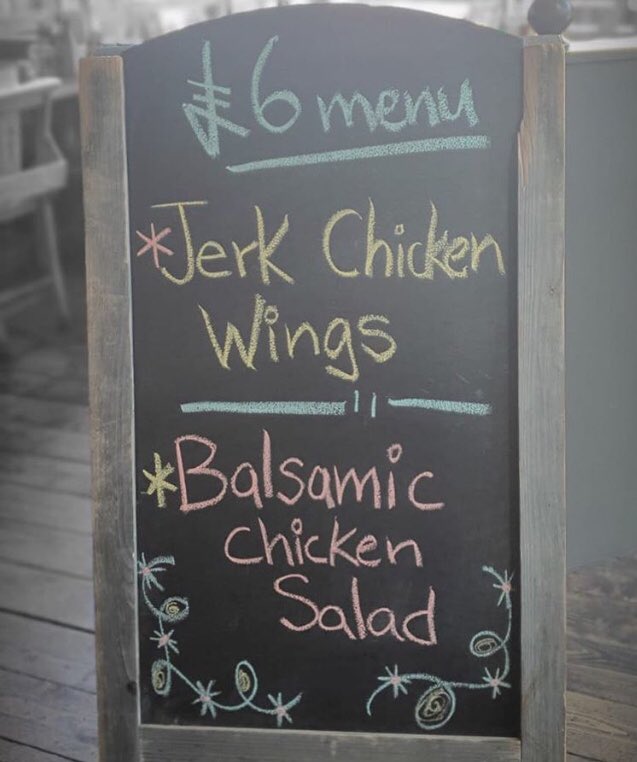 £6 menu
*Jerk Chicken
Wings
*Balsamic
Chicken
Salad